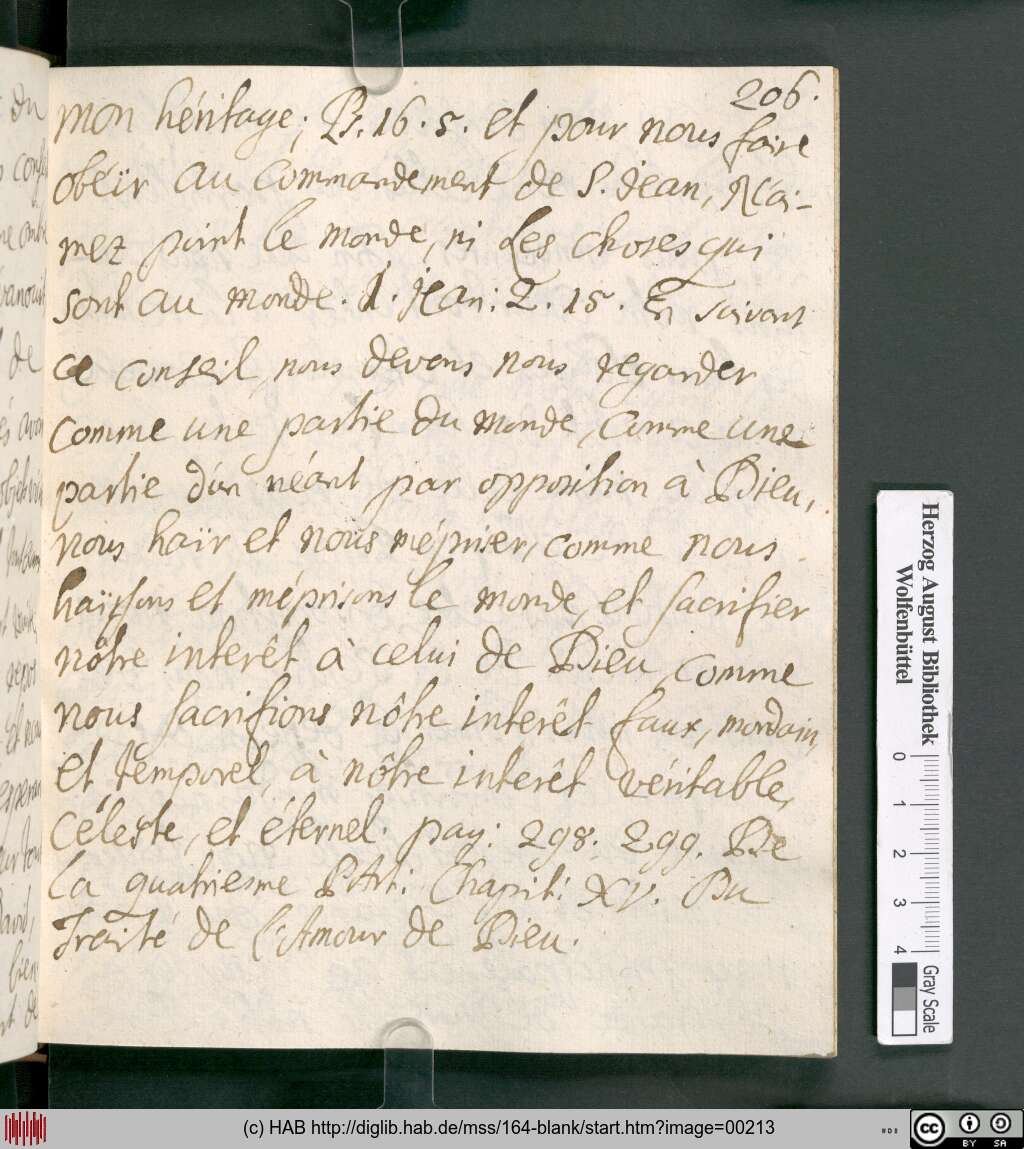 206.
mon héritage; Ps. 16. 5. et pour nous faire
obéïr au commandement de S. Jean, N'ai-
mez point le monde, ni les choses qui
sont au monde. 1. Jean: 2. 15. En suivant
ce conseil, nous devons nous regarder
comme une partie du monde, comme une
partie d'un néant par opposition à Dieu,
nous haïr et nous mépriser, comme nous
haïssons et méprisons le monde, et sacrifier
nôtre interêt à celui de Dieu, comme
nous sacrifions nôtre interêt faux, mondain,
et temporel, à nôtre interêt véritable,
Céleste, et éternel. pag: 298. 299. De
la quatriesme Part: Chapit: XV. Du
Traité de l'Amour de Dieu.
Herzog August Bibliothek
Wolfenbüttel
0 1 2 3 4
Gray Scale
(c) HAB http://diglib.hab.de/mss/164-blank/start.htm?image=00213
cc BY SA